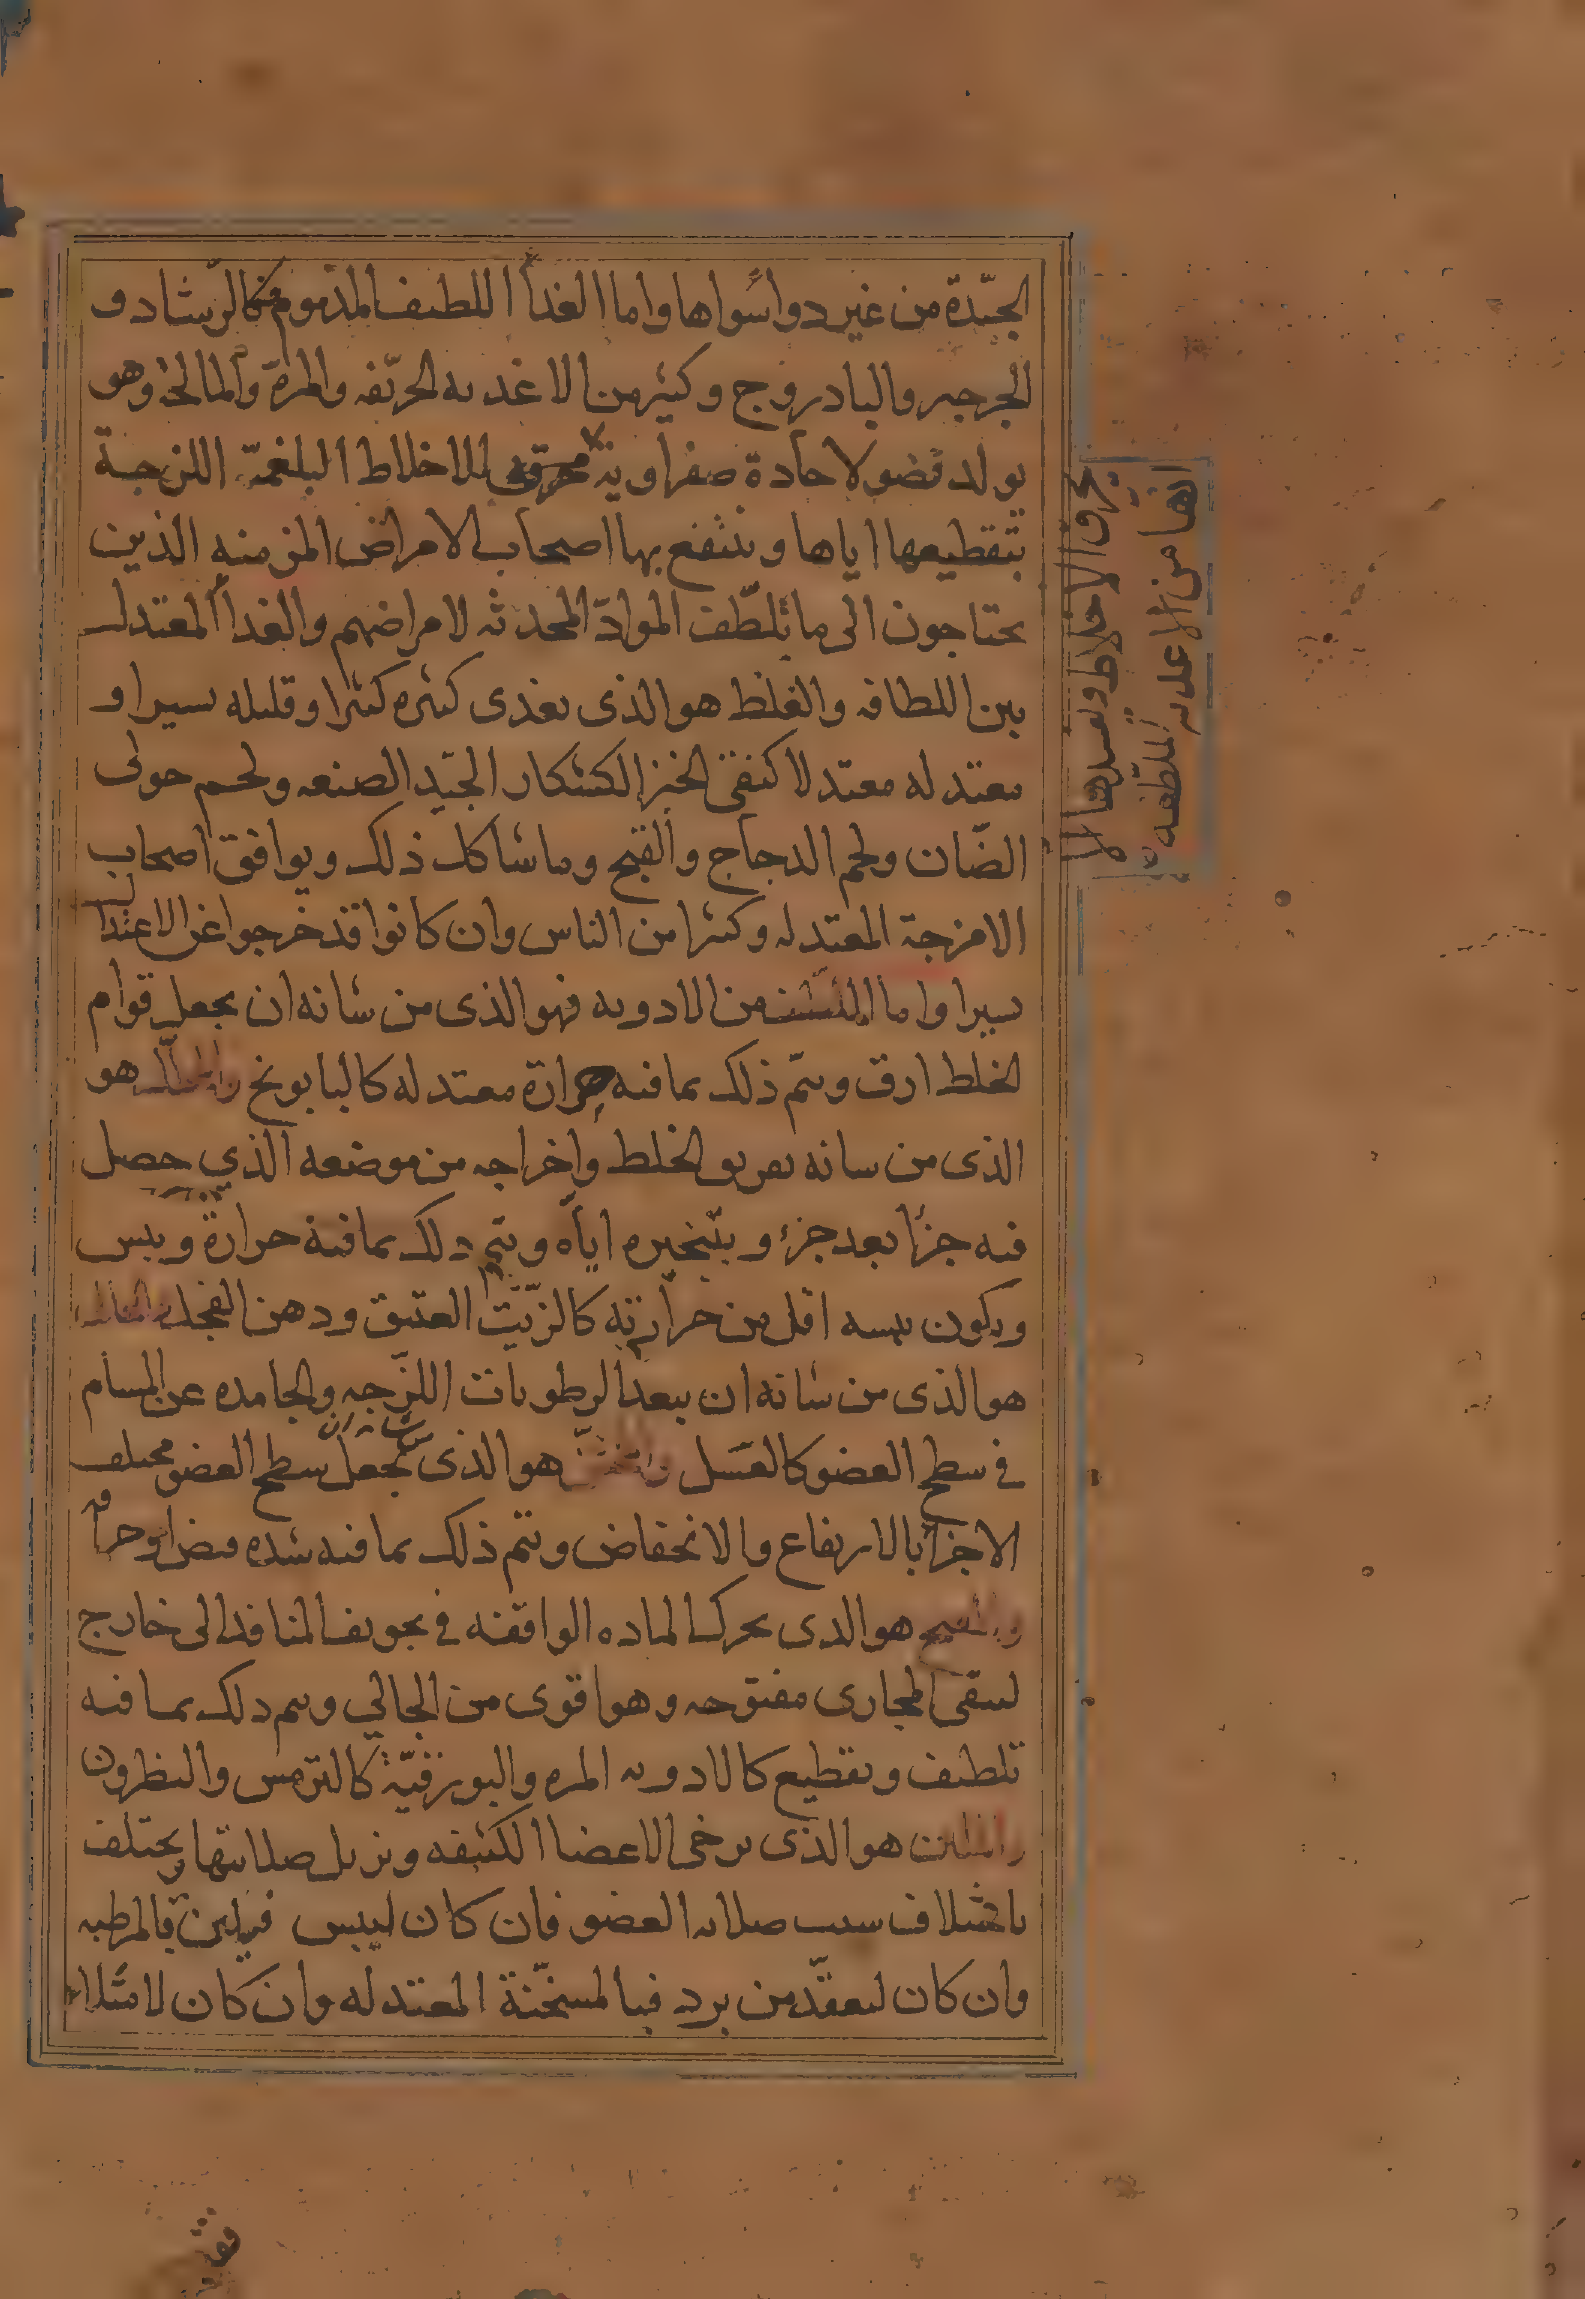 الجيّدة من غير دواء سواها واما الغذآ اللطيف المذموم فكالرّشاد و
الجرجير والبادروج وكثير من الاغذيه الحريّفه والمرة والمالحة وهو
يولد فضولا حادة صفراوية محرقة للاخلاط البلغميّة اللزجة
بتقطيعها اياها وينتفع بها اصحاب الامراض المزمنه الذين
يحتاجون الى ما يلطّف الموادّ المحدثه لامراضهم والغذآ المعتدل
بين اللطافه والغلظ هو الذى يغذى كثيره كثيرا وقليله يسيرا و
معتدله معتدلا كنقى الخبز الكشكار الجيّد الصنعه ولحم حولى
الضّان ولحم الدجاج والقبج وما شاكل ذلك ويوافق اصحاب
الامزجة المعتدله وكثيرا من الناس وان كانوا قد خرجوا عن الاعتدال
يسيرا واما من الادويه فهو الذى من شانه ان يجعل قوام
الخلط ارق ويتم ذلك بما فيه حرارة معتدله كالبابونج والمحلّل هو
الذى من شانه تفريق الخلط واخراجه من موضعه الذي حصل
فيه جزأ بعد جزء وبتبخيره اياه ويتم ذلك بما فيه حرارة ويبس
ويكون يبسه اقل من حرارته كالزّيت العتيق ودهن الفجل والجالى
هو الذى من شانه ان يبعد الرطوبات اللزجه والجامده عن المسام
في سطح العضو كالعسل والمخشّن هو الذى من شانه ان يجعل سطح العضو مختلف
الاجزآ بالارتفاع والانخفاض ويتم ذلك بما فيه شده قبض او حرافه
والمفتح هو الذى يحرك المادة الواقفه في تجويف المنافذ الى خارج
لتبقى المجارى مفتوحه وهو اقوى من الجالي ويتم ذلك بما فيه
تلطيف وتقطيع كالادويه المره والبورقيّة كالترمس والنطرون
والملين هو الذى يرخى الاعضا الكثيفه ويزيل صلابتها ويختلف
باختلاف سبب صلابه العضو فان كان ليبس فيلين بالمرطبه
وان كان لتعقّد من برد فبالمسخّنة المعتدله وان كان لامتلاء
تحرق الاخلاط وتفسدها الا
انها من الاغذيه الملطّفه